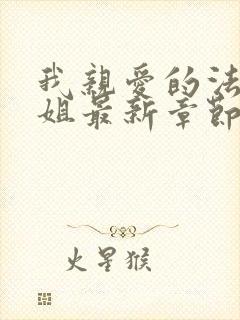 我親愛的法
姐最新章節
火星猴